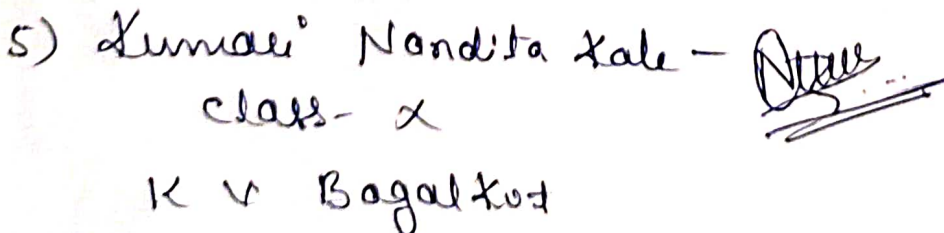 5) Kumari Nandita Kale -
class - X
K V Bagalkot